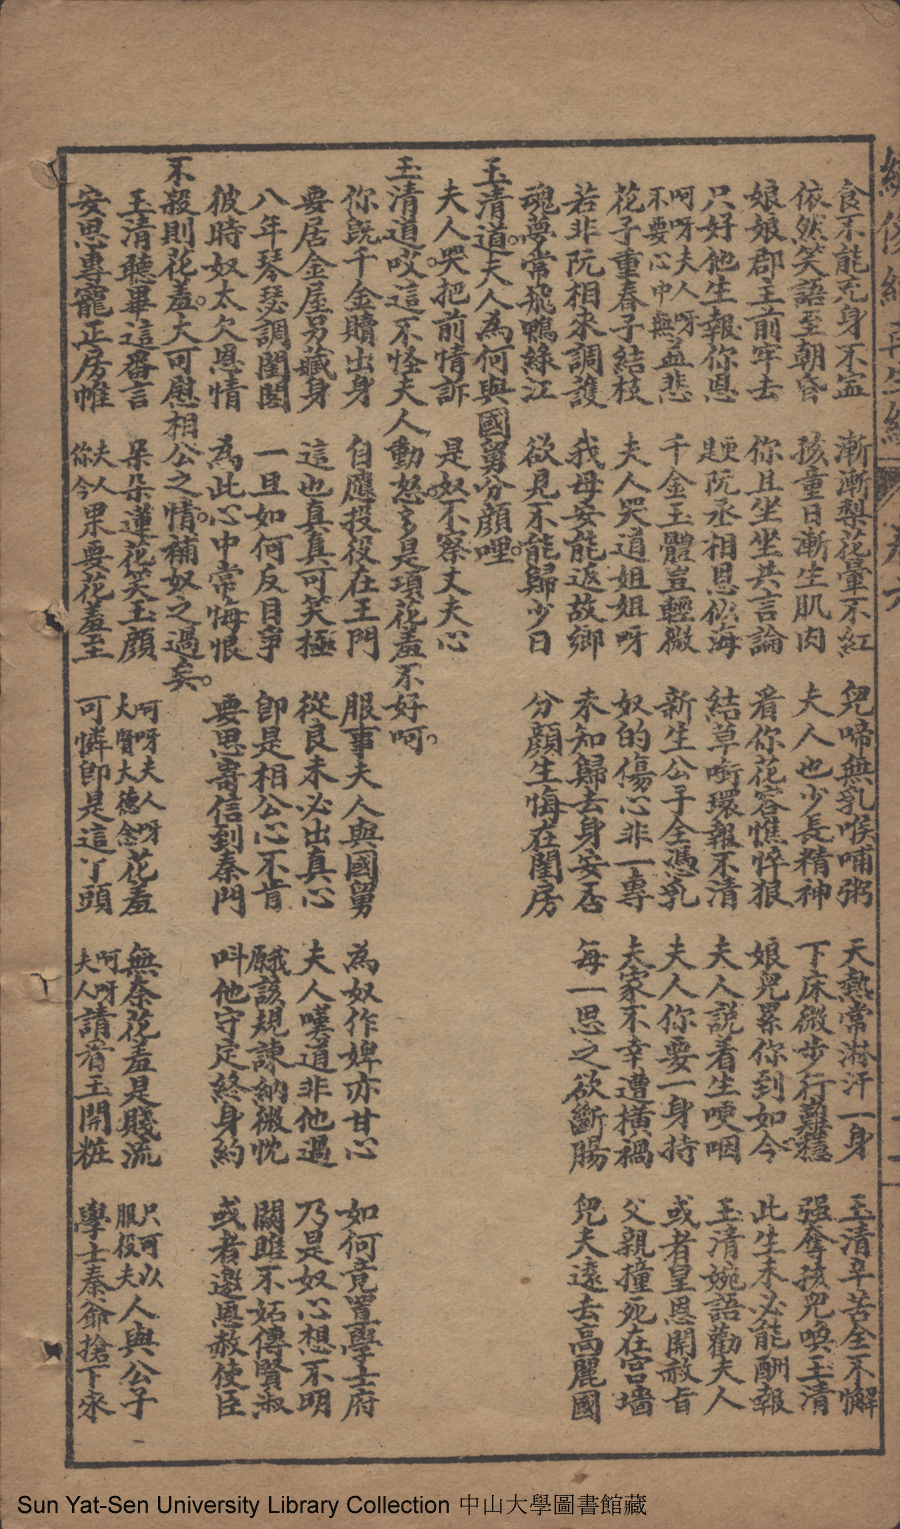 食不能充身不寍　漸漸梨花暈不紅　兒啼無乳喉哺粥　天熱常淋汗一身　玉清辛苦全不懈
依然笑語至朝昏　孩童日漸生肌肉　夫人也少長精神　下床微步行難穩　强奪孩兒喚玉清
娘娘郡主前牢去　你且坐坐共言論　着你花容憔悴狠　娘兒累你到如今　此生未必能酬報
只好他生報你恩　㫾阮丞相恩似海　結草啣環報不清　夫人説着生哽咽　玉清婉語勸夫人
呵呀夫人呀不要心中無益悲　千金玉體豈輕微　新生公子全憑乳　夫人你要一身持　或者皇恩開赦旨
花子重春子結枝　夫人哭道姐姐呀　奴的傷心非一專　夫家不幸遭橫禍　父親撞死在宫墻
若非阮相來調護　我母安能返故鄉　未知歸去身安否　每一思之欲斷腸　兒夫遠去高麗國
魂夢常飛鴨綠江　欲見不能歸少日　分顔生悔在閨房
玉清道。夫人為何與國舅分顔哩。
夫人哭把前情訴　是奴不察丈夫心
玉清道。哎。這不怪夫人動怒。多是項花羞不好呵。
你旣千金贖出身　自應投役在王門　服事夫人與國舅　為奴作婢亦甘心　如何竟置學士府
要居金屋另藏身　這也真真可笑極　從良未必出真心　夫人嘆道非他過　乃是奴心想不明
八年琴瑟調閨閣　一旦如何反目爭　卽是相公心不肯　我原該規諫納微忱　關雎不妬傳賢淑
彼時奴太欠恩情　為此心中常悔恨　要思寄信到秦門　呌他守定終身約　或者邀恩赦使臣
不殺則花羞。大可慰相公之情。補奴之過矣。
玉清聽畢這番言　朵朵蓮花笑玉顔　呵呀夫人呀大賢大德念花羞　無奈花羞是賤流　只可以服役夫人與公子
安思專寵正房帷　夫人你今果要花羞至　可憐卽是這丫頭　呵呀夫人請着玉開粧　學士秦爺搶下來
Sun Yat-Sen University Library Collection 中山大學圖書館藏